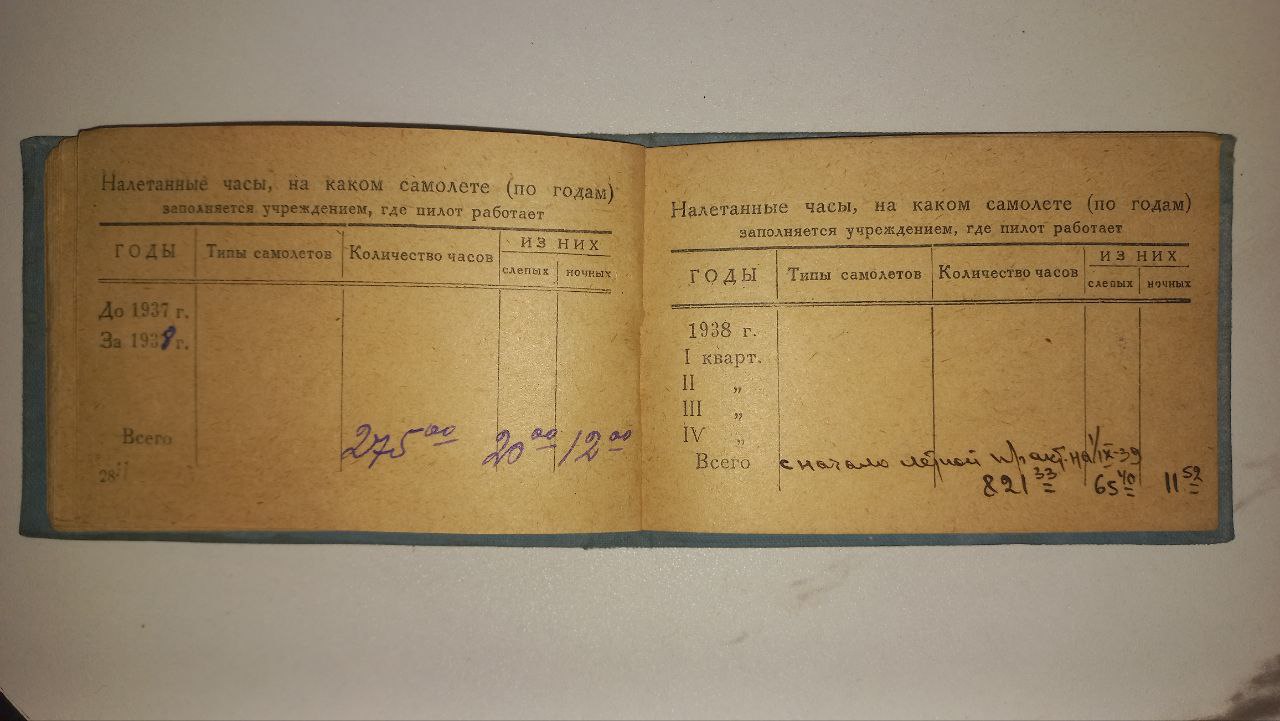 Налетанные часы, на каком самолете (по годам)
заполняется учреждением, где пилот работает
ГОДЫ Типы самолетов Количество часов ИЗ НИХ
слепых ночных
До 1937 г.
За 1938 г.
Всего 275 00 20 00 12 00
28
Налетанные часы, на каком самолете (по годам)
заполняется учреждением, где пилот работает
ГОДЫ Типы самолетов Количество часов ИЗ НИХ
слепых ночных
1938 г.
I кварт.
II „
III „
IV „
Всего с начало летной практ. на 1/IX-39
821 33 65 40 11 52